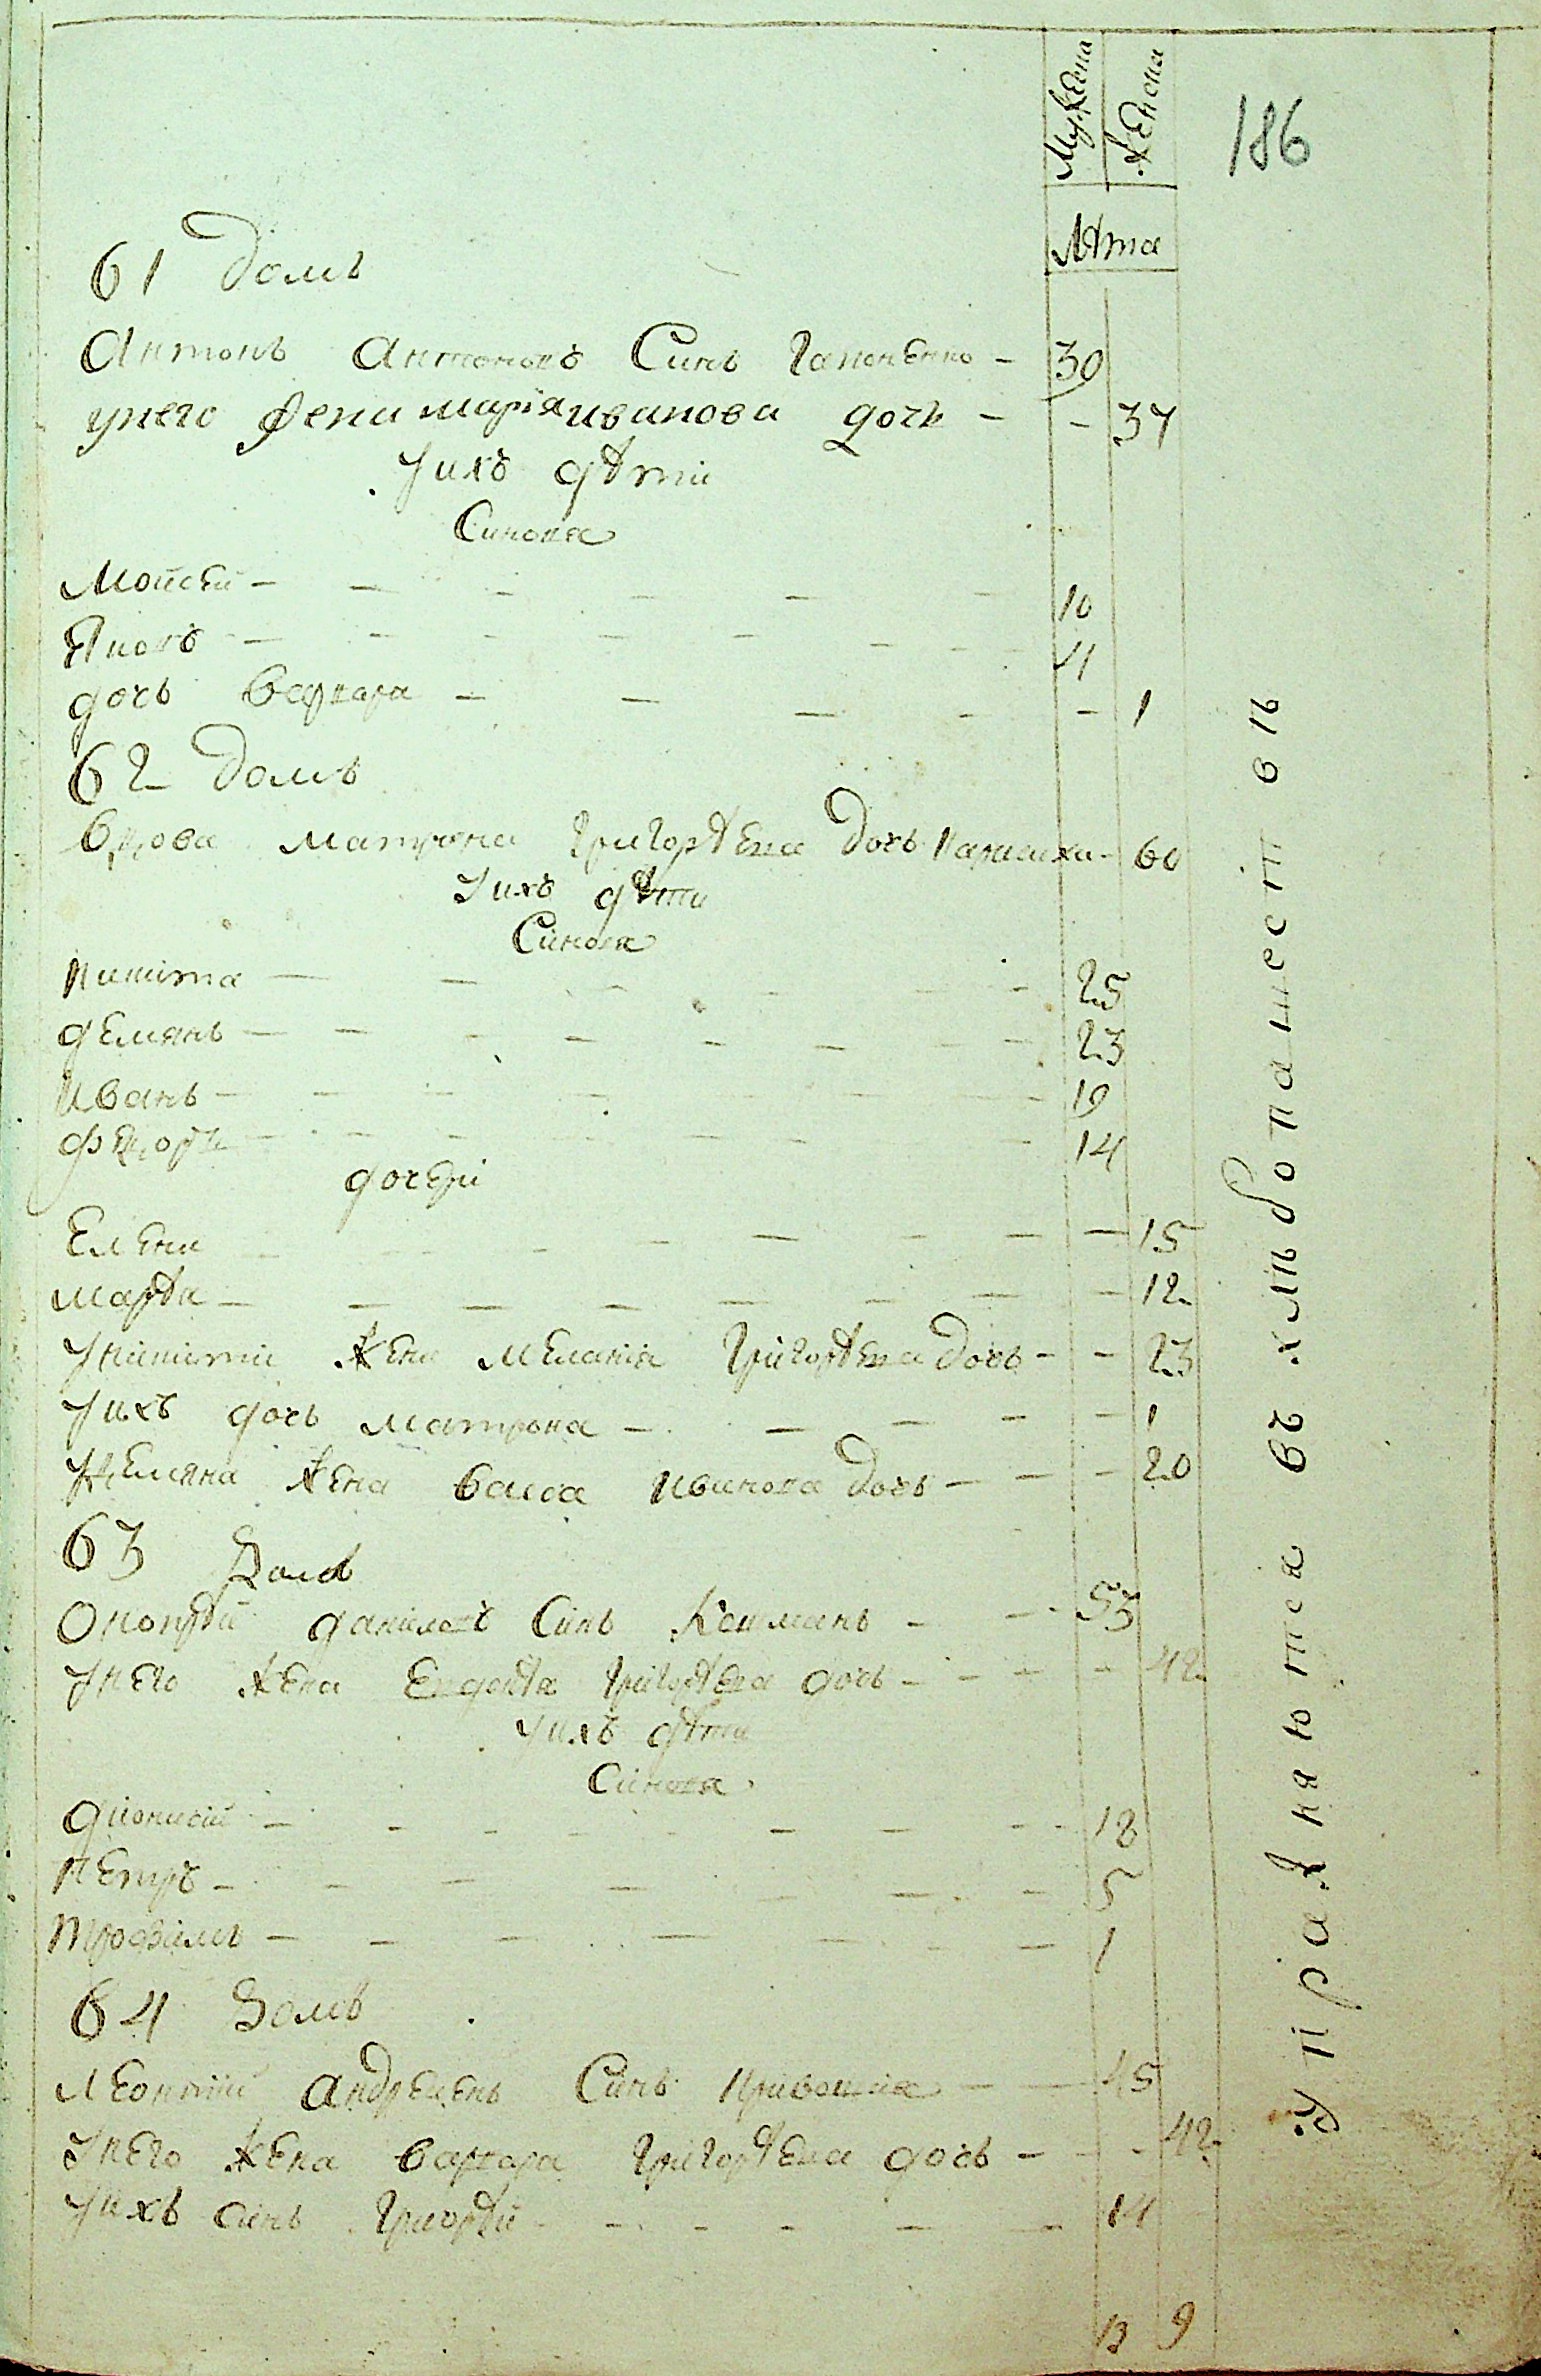 Мужска
Женска
186
Лѣта
61 Домъ
Антонъ Антоновъ Синъ Гапоненко - 30
унего жена мариѧ иванова дочь - - 37
Уихъ дѣти
Синовѧ
Мойсей - 10
Яковъ - 4
дочь Варвара - - 1
62 Домъ
Вдова матрона Григорѣева Дочь - 60
Уихъ дѣти
Синовѧ
Никита - 25
демянъ - 23
Иванъ - 19
Федоръ - 14
дочери
Елена - 15
марѳа - 12
Уникити жена меланія Григорѣева Дочь - - 23
Уихъ дочь матрона - - 1
Удемяна жена васса Иванова Дочь - - 20
63 Домъ
Онопрѣй даниловъ Синъ - 53
Унего жена Евдокѣя Григорѣева дочь - - 42
Уихъ дѣти
Синовѧ
дионисій - 18
Петръ - 5
трофимъ - 1
64 Домъ
Леонтій Андреевъ Синъ Кривошия - 45
Унего жена варвара Григорѣева дочь - - 42
Уихъ синъ Григорѣй - 14
13 9
Упражнаются въ хлѣбопашествѣ